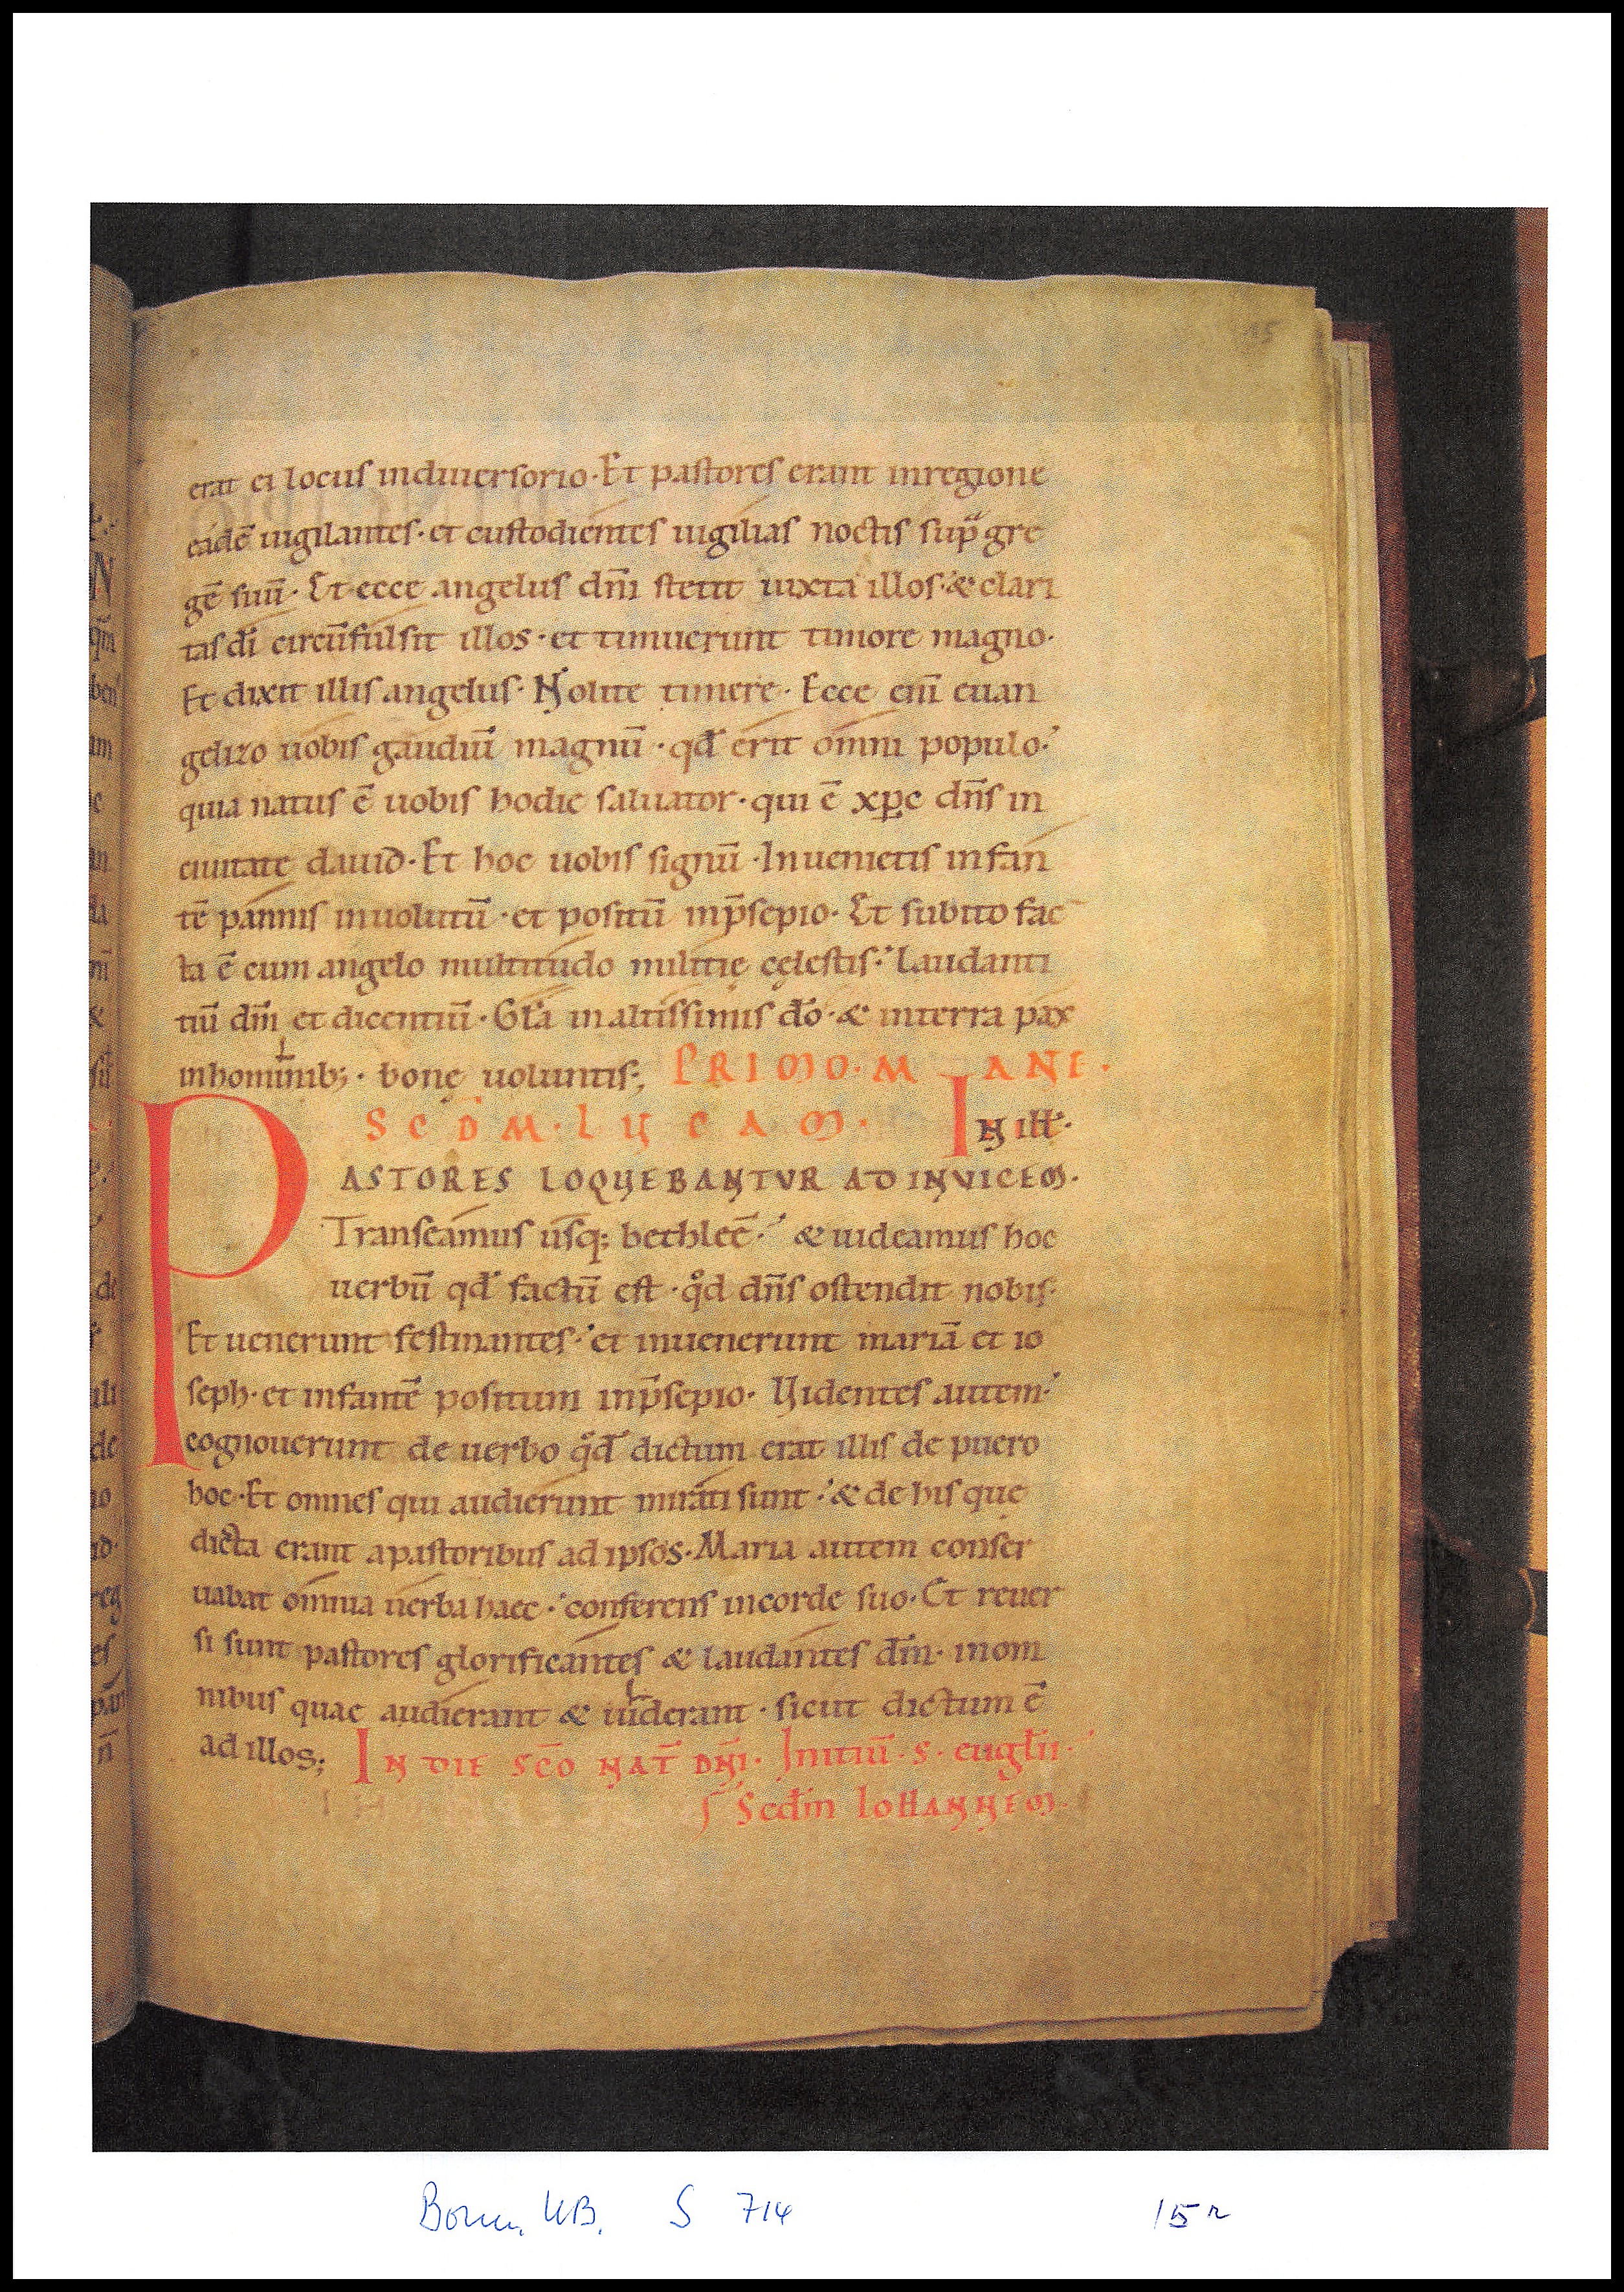 15
erat ei locus indiuersorio · Et pastores erant inregione
eadē uigilantes · et custodientes uigilias noctis sup̄ᵃ gre
gē suū · Et ecce angelus dn̄i stetit iuxta illos · & clari
tas dī circūfulsit illos · et timuerunt timore magno ·
Et dixit illis angelus · Nolite timere · Ecce eni̅ euan
gelizo uobis gaudiū magnū · qd̄ erit omni populo ·
quia natus ē uobis hodie saluator · qui ē xp̄c dn̄s in
ciuitate dauid · Et hoc uobis signū · Inuenietis infan
tē pannis inuolutū · et positū inp̄sepio · Et subito fac
ta ē cum angelo multitudo militię cęlestis · Laudanti
tiū dm̄ et dicentiū · Gl̄a inaltissimis dō · & interra pax
inhominib; · bonę uoluntis:, PRIMO · MANE ·
SCD̄M · LUCAM · IN ill̄ ·
PASTORES LOQUEBANTVR AD INVICEM ·
Transeamus usq; bethleē · & uideamus hoc
uerbū qd̄ factū est · qͦd dn̄s ostendit nobis ·
Et uenerunt festinantes · et inuenerunt mariā et io
seph · et infantē positum inp̄sepio · Uidentes autem ·
cognouerunt de uerbo qͦd dictum erat illis de puero
hoc · Et omnes qui audierunt mirati sunt · & de his que
dicta erant apastoribus ad ipsos · Maria autem conser
uabat omnia uerba haec · conferens incorde suo · Et reuer
si sunt pastores glorificantes & laudantes dm̄ · inom
nibus quae audierant & uiderant · sicut dictum ē
ad illos; IN DIE SC̄O NAT̄ DN̄I · Initiū · S · eugl̄ii ·
Scd̄m IOHANNEM ·
Bonn, UB, S 714 15 r